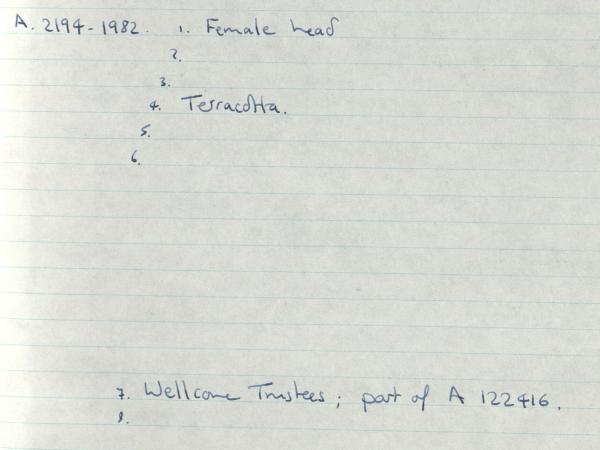 A. 2194-1982. 1. Female head
2.
3.
4. Terracotta.
5.
6.
7. Wellcome Trustees; part of A 122416.
8.